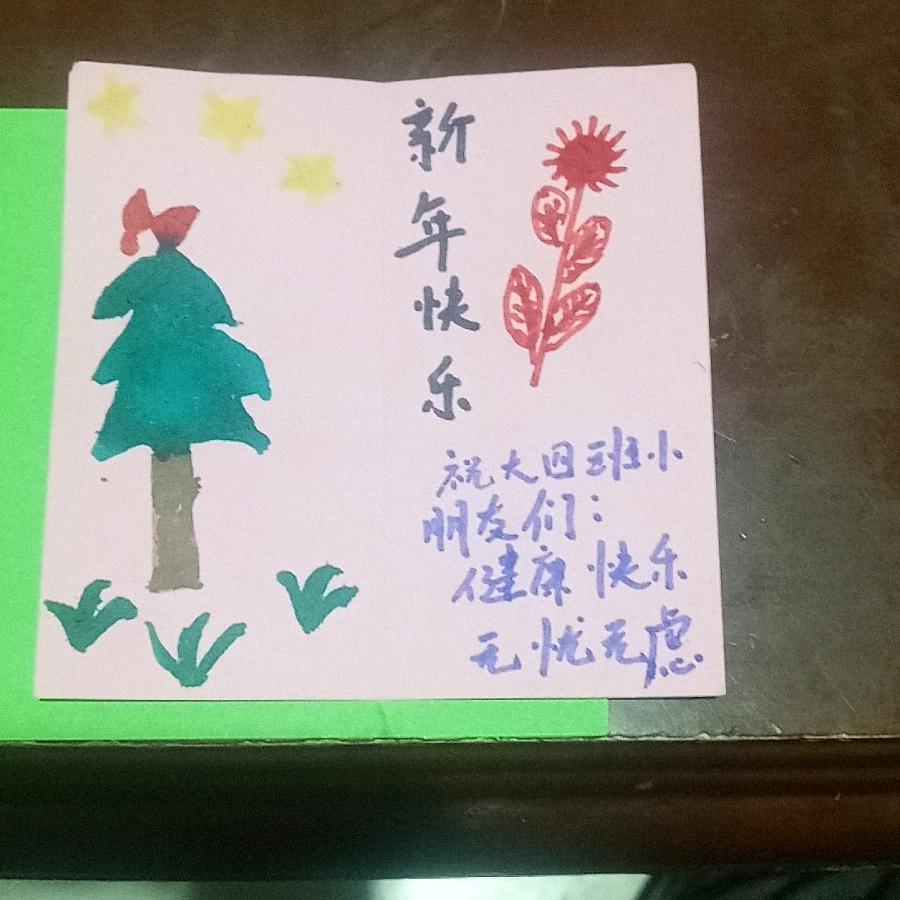 新年快乐
祝大四班小
朋友们：
健康快乐
无忧无虑